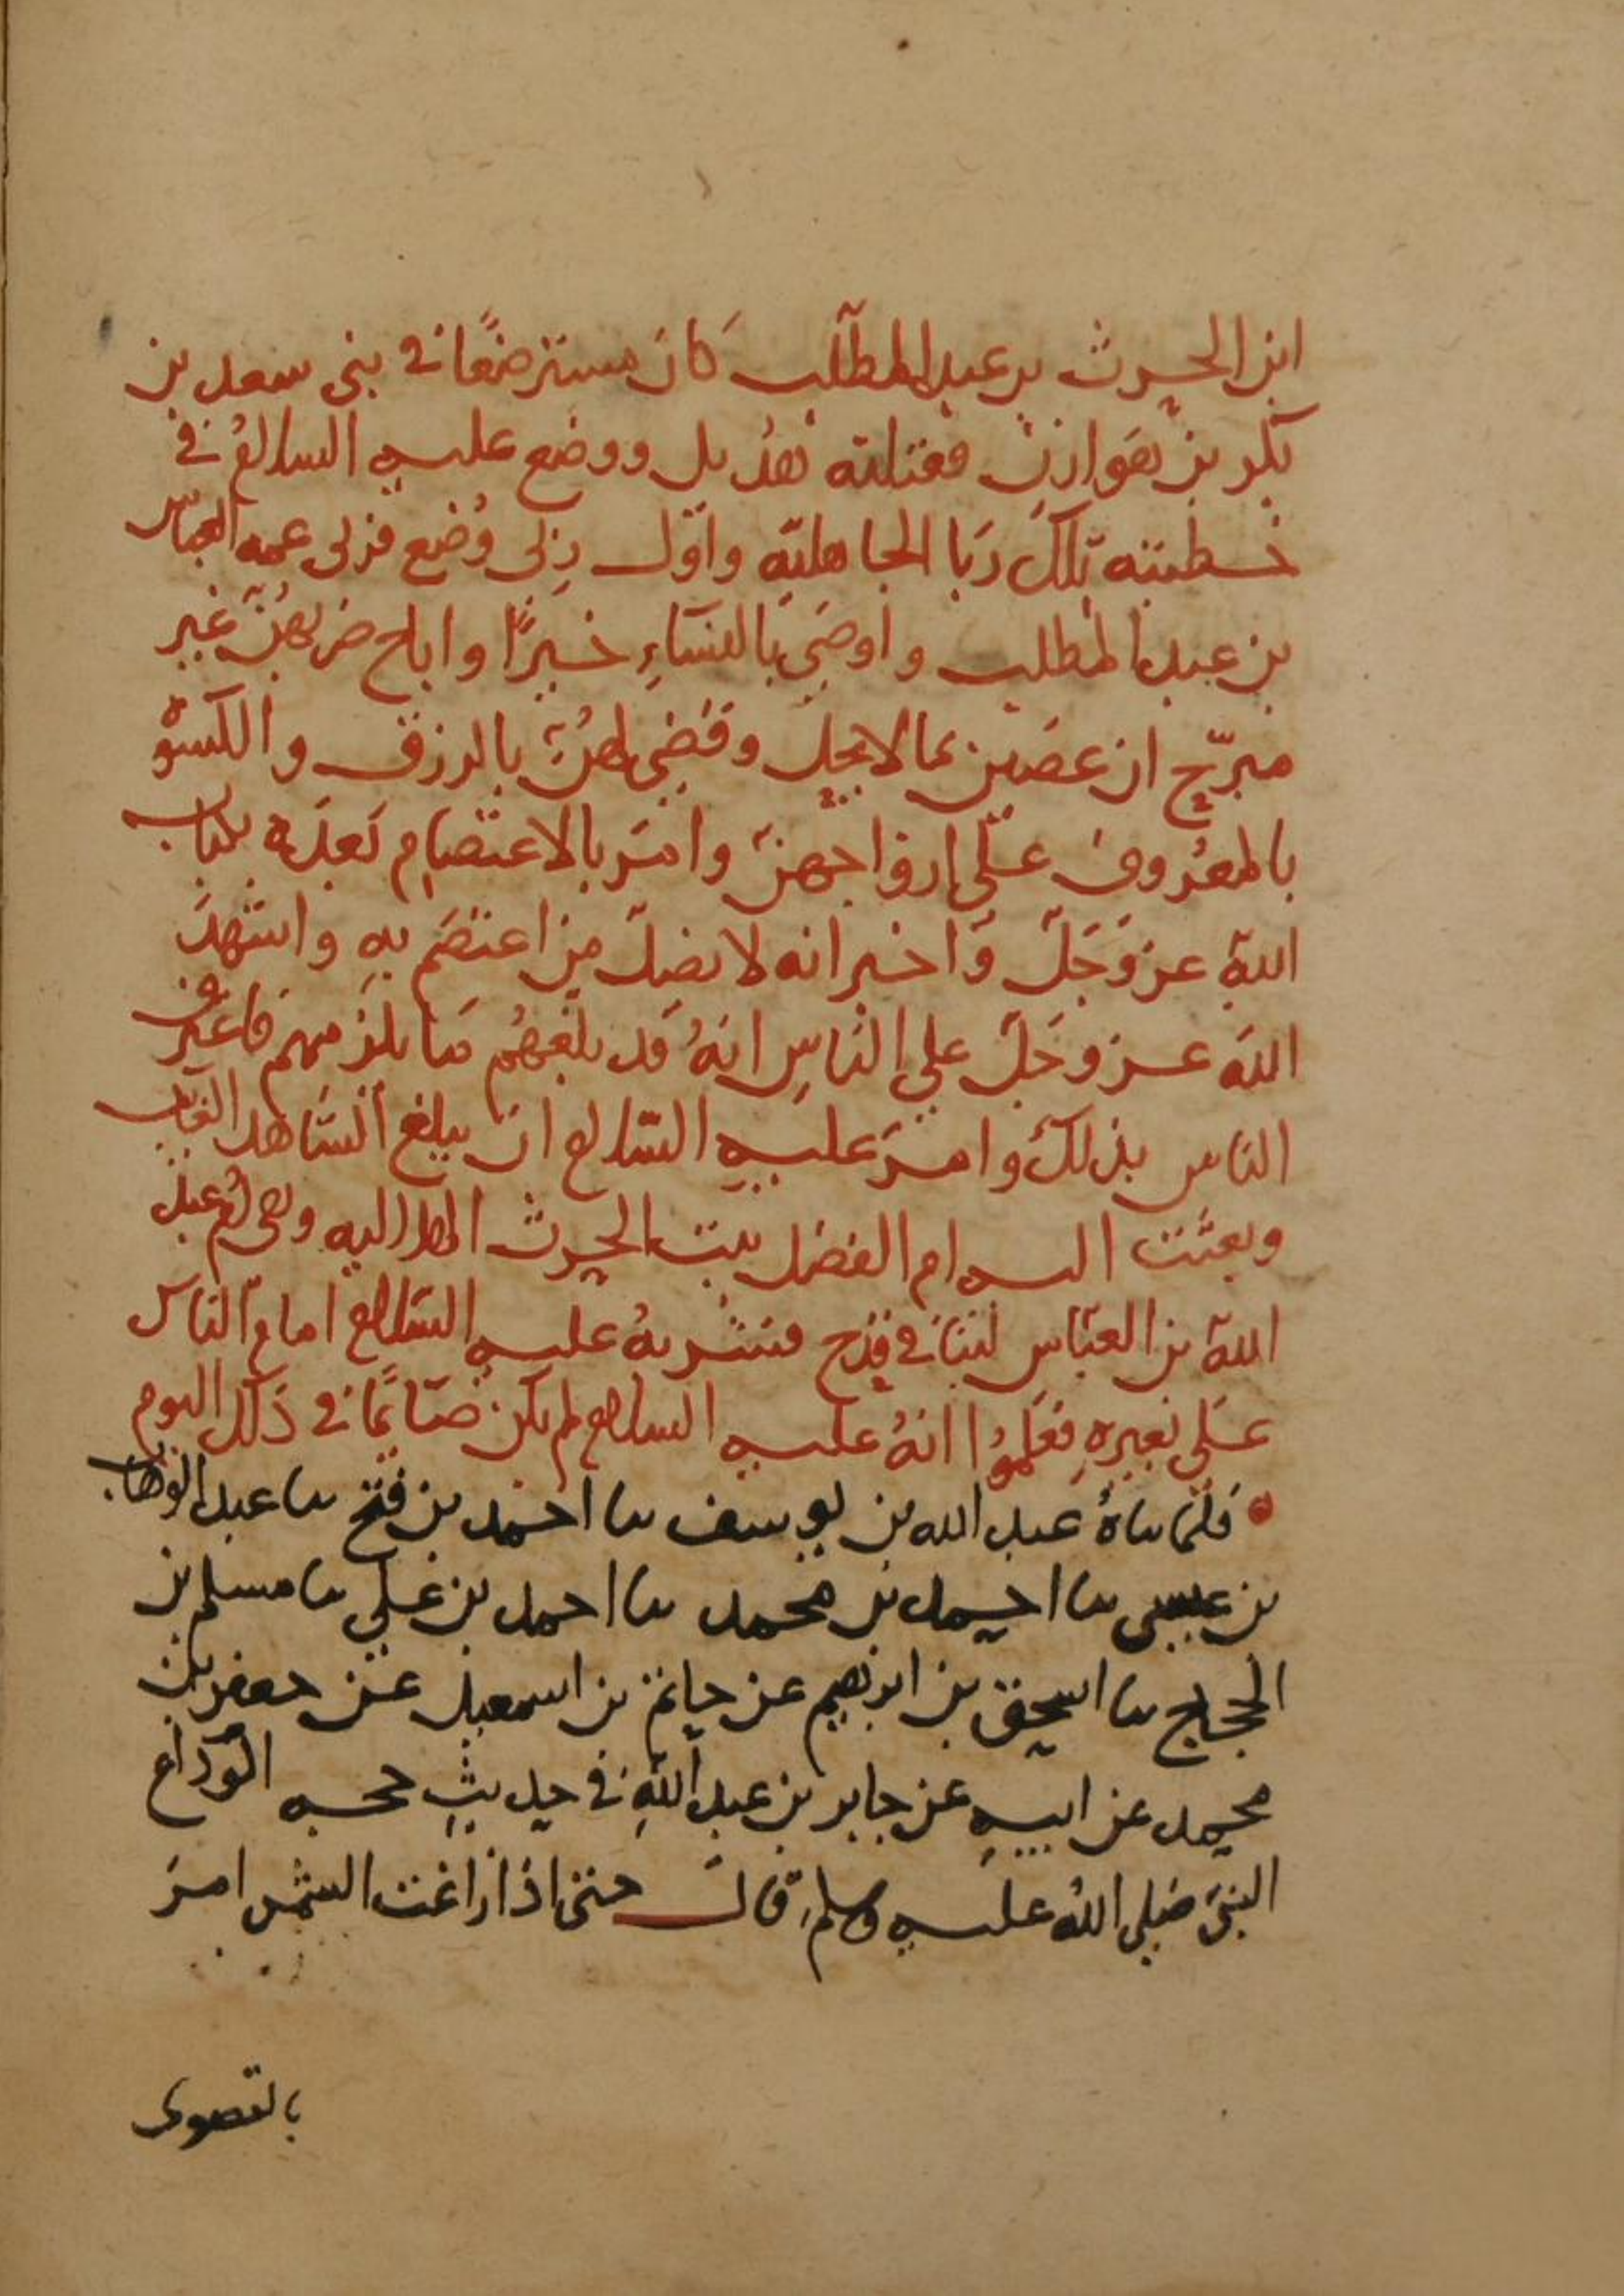 ابن الحرث بن عبد المطلب كان مسترضعًا في بني سعد بن
بكر بن هوازن فقتلته هذيل ووضع عليه السلام في
خطبته تلك ربا الجاهلية واول ربى وُضع فربى عمه العباس
بن عبد المطلب واوصى بالنساءِ خيرًا واباح ضربهنّ غير
مبرّح ان عصين بما لا يحل وقضى لهنّ بالرزق والكسوة
بالمعروف على ازواجهنّ وامر بالاعتصام بعده بكتاب
الله عز وجلّ واخبر انه لا يضلّ من اعتصم به واشهد
الله عز وجلّ على الناسِ انهُ قد بلغهُم ما يلزمهم فاعترف
الناس بذلك وامر عليه السلام ان يبلغ الشاهد الغايب
وبعثت اليه ام الفضل بنت الحرث الهلاليه وهي ام عبد
الله بن العباس لبنا في قدح فشربهُ عليه السلام امام الناس
على بعيرهِ فعلموا انهُ عليه السلام لم يكن صائمًا في ذلك اليوم
فلما ساهُ عبد الله بن يوسف سا احمد بن فتح سا عبد الوهاب
بن عيسى سا احمد بن محمد سا احمد بن علي سا مسلم بن
الحجاج سا اسحق بن ابرهيم عن حاتم بن اسمعيل عن جعفر بن
محمد عن ابيهِ عن جابر بن عبد اللهِ في حديث حجه الوداع
النبي صلى اللهُ عليه وسلم قال حتى اذا زاغت الشمس امر
بالقصوى